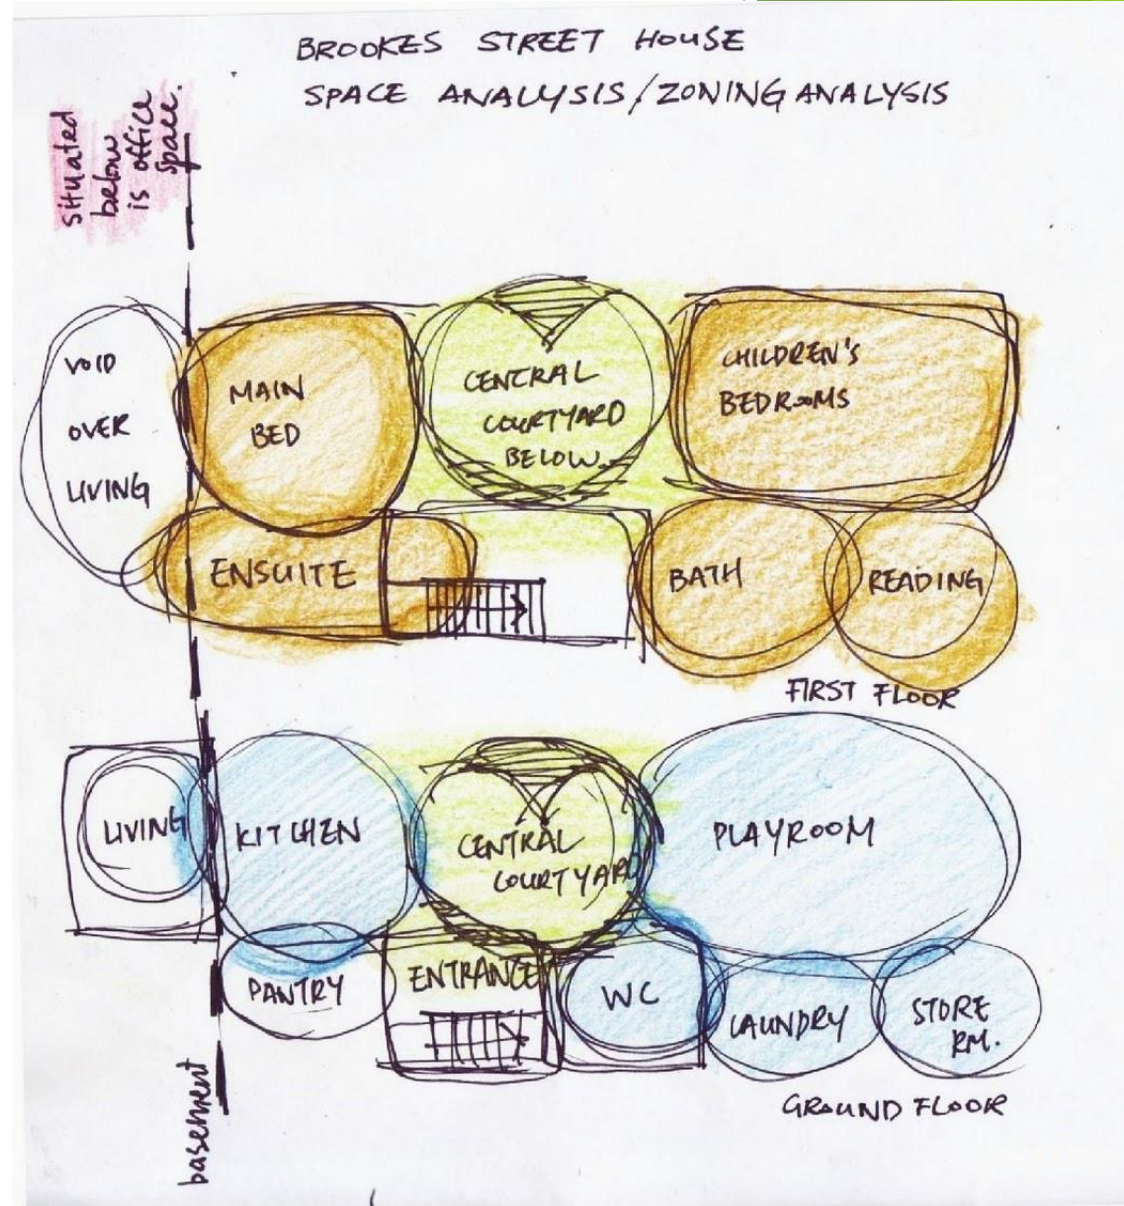 BROOKES STREET HOUSE
SPACE ANALYSIS/ZONING ANALYSIS
situated
below
is office
space.
VOID
OVER
LIVING
MAIN
BED
CENTRAL
COURTYARD
BELOW
CHILDREN'S
BEDROOMS
ENSUITE
BATH
READING
FIRST FLOOR
LIVING
KITCHEN
CENTRAL
COURTYARD
PLAYROOM
PANTRY
ENTRANCE
WC
LAUNDRY
STORE
RM.
GROUND FLOOR
basement